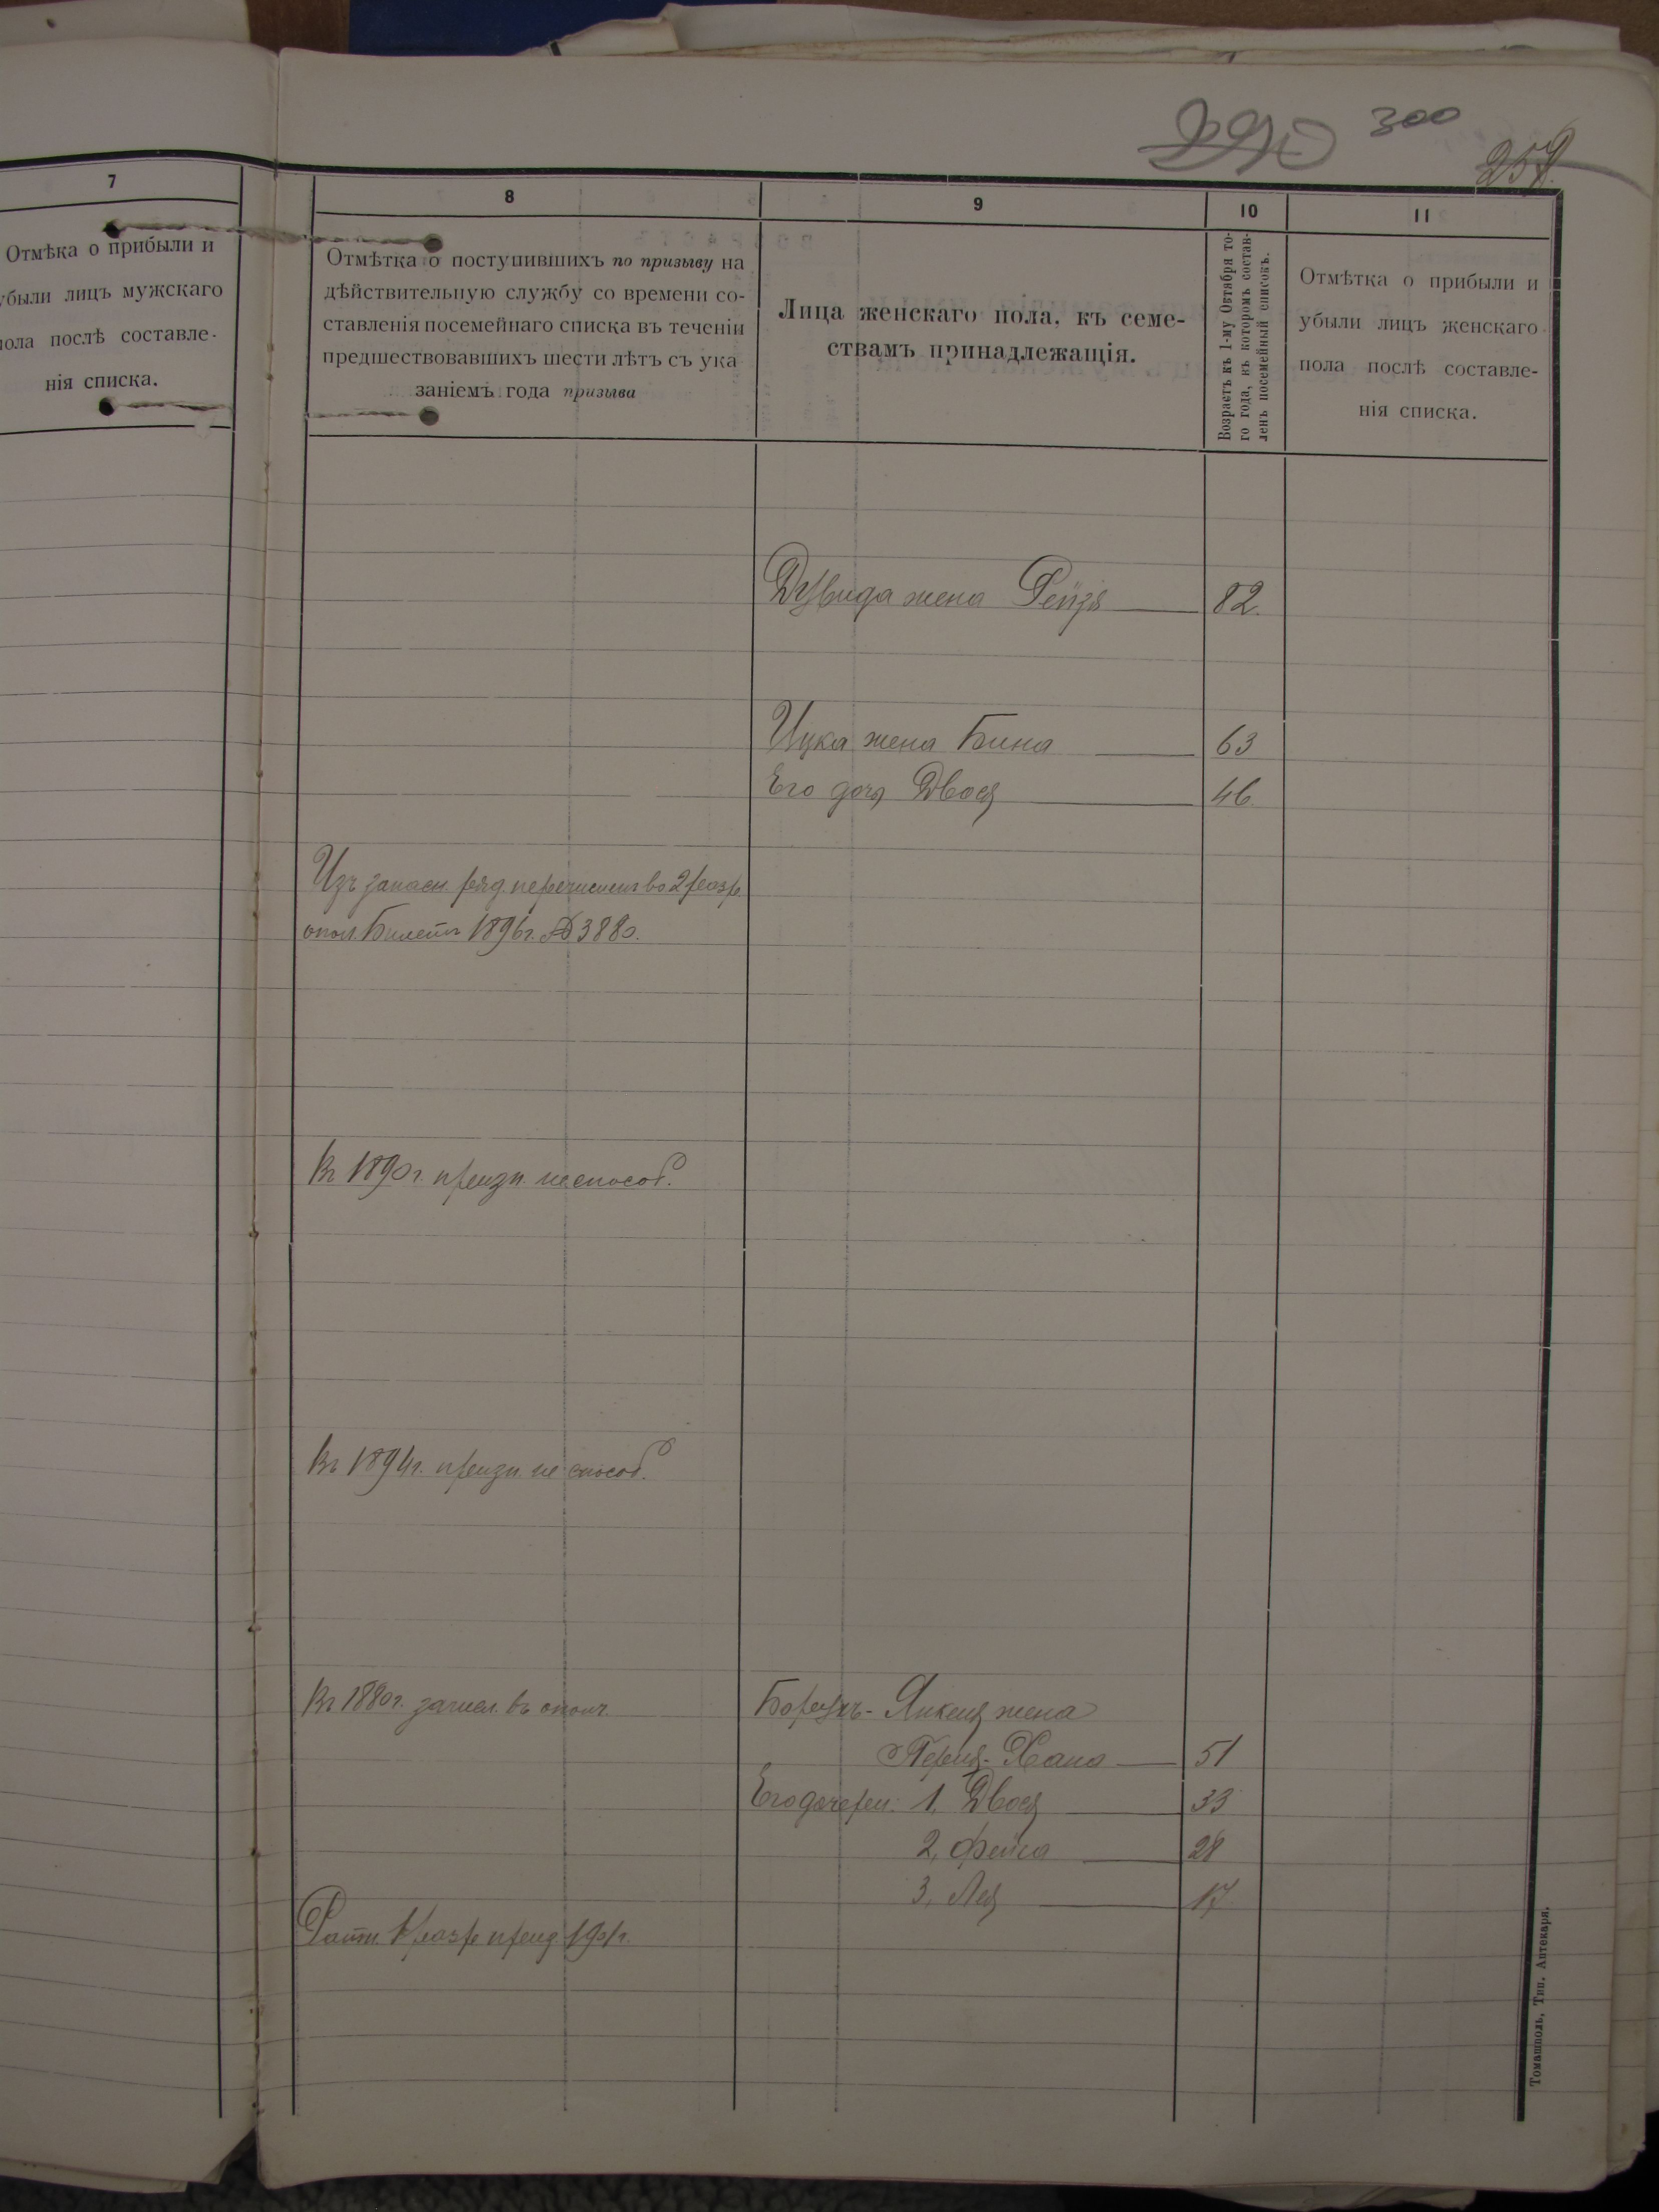 290
300
259
7
8
9
10
11
Отмѣка о прибыли и
убыли лицъ мужскаго
пола послѣ составле-
нія списка.
Отмѣтка о поступившихъ по призыву на
дѣйствительную службу со времени со-
ставленія посемейнаго списка въ теченіи
предшествовавшихъ шести лѣтъ съ ука
заніемъ года призыва
Лица женскаго пола, къ семе-
ствамъ принадлежащія.
Возрастъ къ 1-му Октября то-
го года, въ которомъ состав-
ленъ посемейный списокъ.
Отмѣтка о прибыли и
убыли лицъ женскаго
пола послѣ составле-
нія списка.
жена Рейзя 82.
Ицка жена Бина 63
Его дочь Двося 46.
Изъ запасн. ряд. перечисленъ во 2 разр.
опол. Билетъ 1896г. № 3880.
Въ 1890г. призн. неспособ.
Въ 1894г. призн. не способ.
Въ 1880г. зачисл. въ ополч.
жена
Перля-Хана 51
Его дочери: 1, Двося 33
2, Фейга 28
3, Лея 17
Ратн. 1 разр. 1901г.
Томашполь, Тип. Аптекаря.